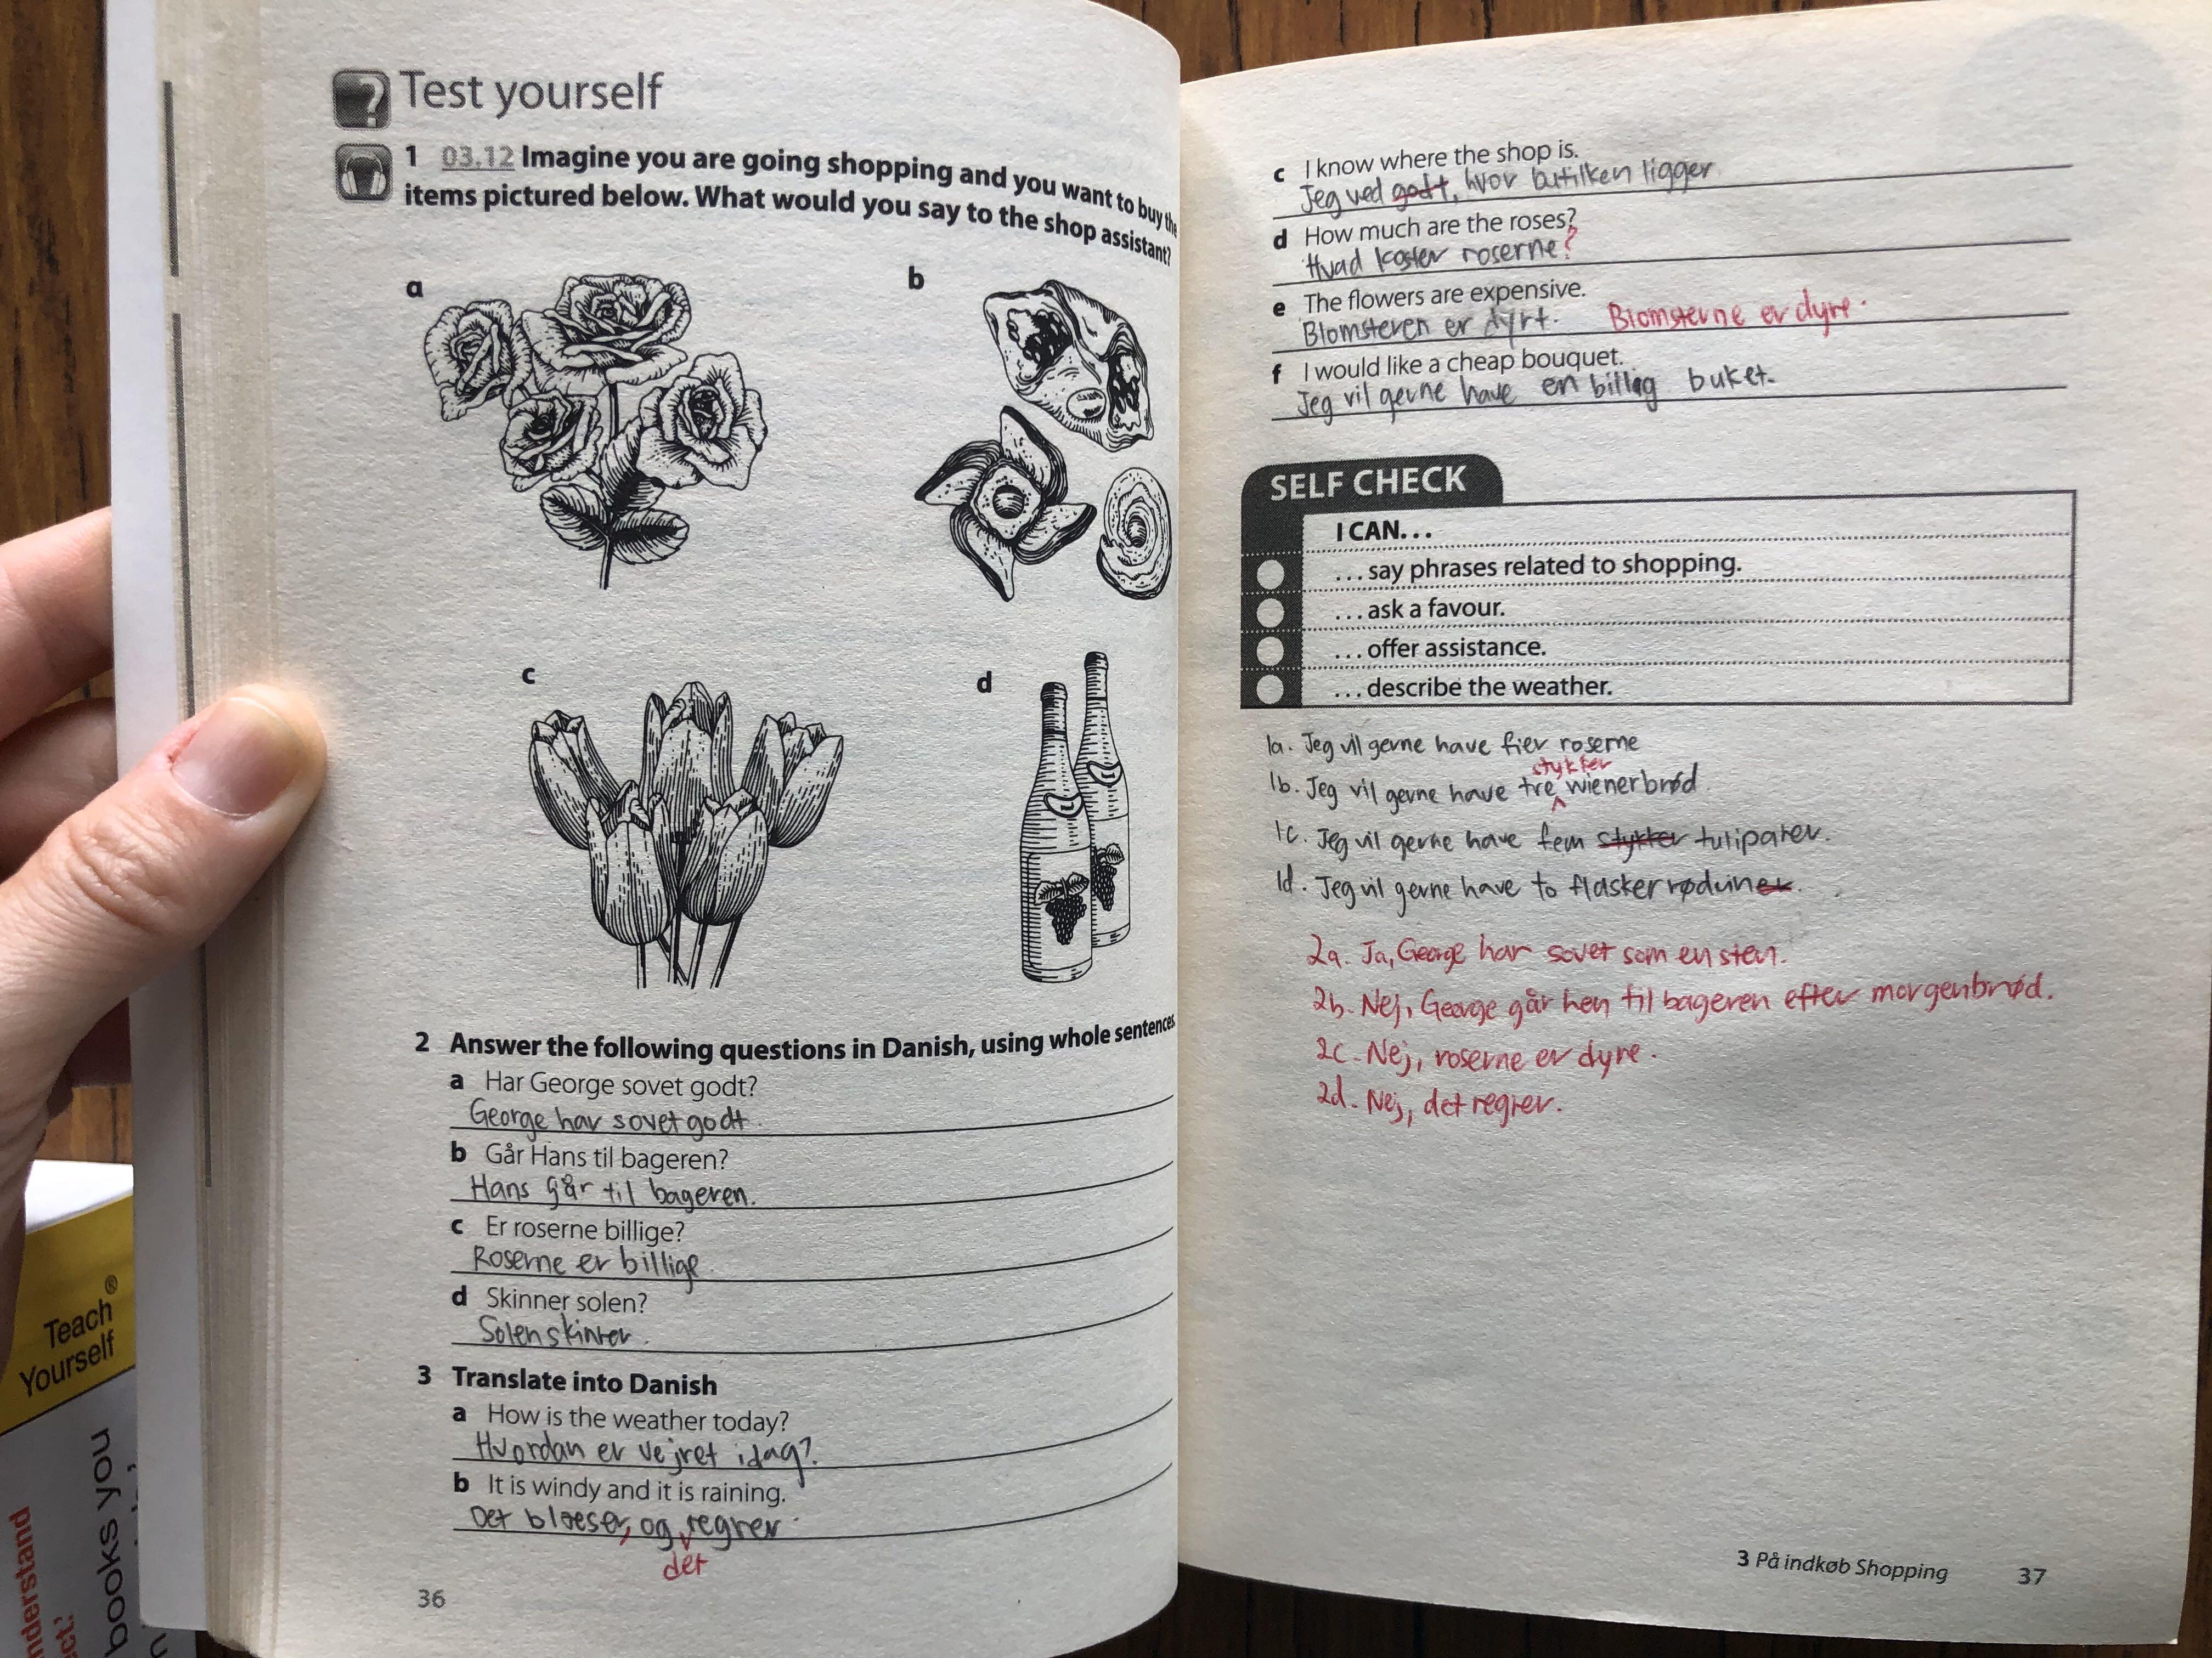 Test yourself
1 03.12 Imagine you are going shopping and you want to buy the
items pictured below. What would you say to the shop assistant?
a
b
c
d
2 Answer the following questions in Danish, using whole sentences
a Har George sovet godt?
George har sovet godt.
b Går Hans til bageren?
Hans går til bageren.
c Er roserne billige?
Roserne er billige.
d Skinner solen?
Solen skinner.
3 Translate into Danish
a How is the weather today?
Hvordan er vejret idag?
b It is windy and it is raining.
Det blæser, og regner.
det
36
c I know where the shop is.
Jeg ved godt, hvor butilken ligger.
d How much are the roses?
Hvad koster roserne?
e The flowers are expensive.
Blomsteren er dyrt. Blomsterne er dyre.
f I would like a cheap bouquet.
Jeg vil gerne have en billig buket.
SELF CHECK
I CAN...
...say phrases related to shopping.
...ask a favour.
...offer assistance.
...describe the weather.
1a. Jeg vil gerne have fier roserne
stykker
1b. Jeg vil gerne have tre wienerbrød.
1c. Jeg vil gerne have fem stykker tulipaner.
1d. Jeg vil gerne have to flasker rødviner.
2a. Ja, George har sovet som en sten.
2b. Nej, George går hen til bageren efter morgenbrød.
2c. Nej, roserne er dyre.
2d. Nej, det regner.
3 På indkøb Shopping 37
Teach
Yourself®
books you
nderstand
ct?